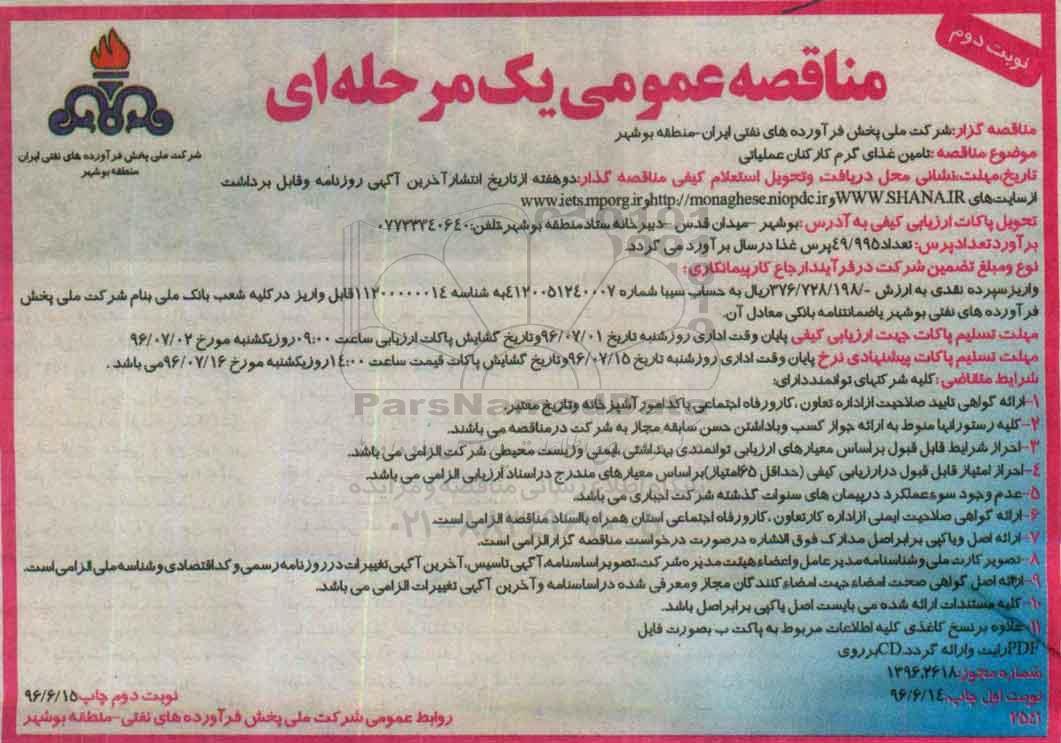 نوبت دوم
مناقصه عمومی یک مرحله ای
شرکت ملی پخش فرآورده های نفتی ایران
منطقه بوشهر
مناقصه گزار:شرکت ملی پخش فرآورده های نفتی ایران-منطقه بوشهر
موضوع مناقصه :تامین غذای گرم کارکنان عملیاتی
تاریخ،مهلت،نشانی محل دریافت وتحویل استعلام کیفی مناقصه گذار:دوهفته ازتاریخ انتشارآخرین آگهی روزنامه وقابل برداشت
ازسایت‌های WWW.SHANA.IR وhttp://monaghese.niopdc.ir وwww.iets.mporg.ir
تحویل پاکات ارزیابی کیفی به آدرس :بوشهر -میدان قدس -دبیرخانه ستادمنطقه بوشهر،تلفن:۰۷۷۳۳۳۴۰۶۴۰
برآوردتعدادپرس: تعداد۴۹/۹۹۵پرس غذا درسال برآورد می گردد.
نوع ومبلغ تضمین شرکت درفرآیندارجاع کارپیمانکاری:
واریزسپرده نقدی به ارزش -/۳۷۶/۷۲۸/۱۹۸ریال به حساب سیبا شماره ۴۱۲۰۰۵۱۲۴۰۰۰۷به شناسه ۱۱۲۰۰۰۰۰۰۱۴قابل واریز درکلیه شعب بانک ملی بنام شرکت ملی پخش
فرآورده های نفتی بوشهر یاضمانتنامه بانکی معادل آن.
مهلت تسلیم پاکات جهت ارزیابی کیفی پایان وقت اداری روزشنبه تاریخ ۹۶/۰۷/۰۱وتاریخ گشایش پاکات ارزیابی ساعت ۰۹:۰۰روزیکشنبه مورخ ۹۶/۰۷/۰۲
مهلت تسلیم پاکات پیشنهادی نرخ پایان وقت اداری روزشنبه تاریخ ۹۶/۰۷/۱۵وتاریخ گشایش پاکات قیمت ساعت ۱۴:۰۰روزیکشنبه مورخ ۹۶/۰۷/۱۶می باشد .
شرایط متقاضی :کلیه شرکتهای توانمنددارای:
۱-ارائه گواهی تایید صلاحیت ازاداره تعاون ،کارورفاه اجتماعی باکدامورآشپزخانه وتاریخ معتبر.
۲-کلیه رستورانها منوط به ارائه جواز کسب وباداشتن حسن سابقه مجاز به شرکت درمناقصه می باشند.
۳-احراز شرایط قابل قبول براساس معیارهای ارزیابی توانمندی بهداشتی ،ایمنی وزیست محیطی شرکت الزامی می باشد.
۴-احراز امتیاز قابل قبول درارزیابی کیفی (حداقل ۶۵امتیاز)براساس معیارهای مندرج دراسناد ارزیابی الزامی می باشد.
۵-عدم وجود سوءعملکرد درپیمان های سنوات گذشته شرکت اجباری می باشد.
۶-ارائه گواهی صلاحیت ایمنی ازاداره کارتعاون ،کارورفاه اجتماعی استان همراه بااسناد مناقصه الزامی است.
۷-ارائه اصل ویاکپی برابراصل مدارک فوق الاشاره درصورت درخواست مناقصه گزارالزامی است.
۸-تصویر کارت ملی وشناسنامه مدیرعامل واعضاء هیئت مدیره شرکت،تصویراساسنامه،آگهی تاسیس،آخرین آگهی تغییرات درروزنامه رسمی وکداقتصادی وشناسه ملی الزامی است.
۹-ارائه اصل گواهی صحت امضاءجهت امضاء کنندگان مجاز ومعرفی شده دراساسنامه وآخرین آگهی تغییرات الزامی می باشد.
۱۰-کلیه مستندات ارائه شده می بایست اصل یاکپی برابراصل باشد.
۱۱-علاوه برنسخ کاغذی کلیه اطلاعات مربوط به پاکت ب بصورت فایل
PDFرایت وارائه گردد.CDبرروی
شماره مجوز:۱۳۹۶.۲۶۱۸
نوبت اول چاپ:۹۶/۶/۱۴
نوبت دوم چاپ:۹۶/۶/۱۵
۲۵۴۱
روابط عمومی شرکت ملی پخش فرآورده های نفتی-منطقه بوشهر
ParsNamadData